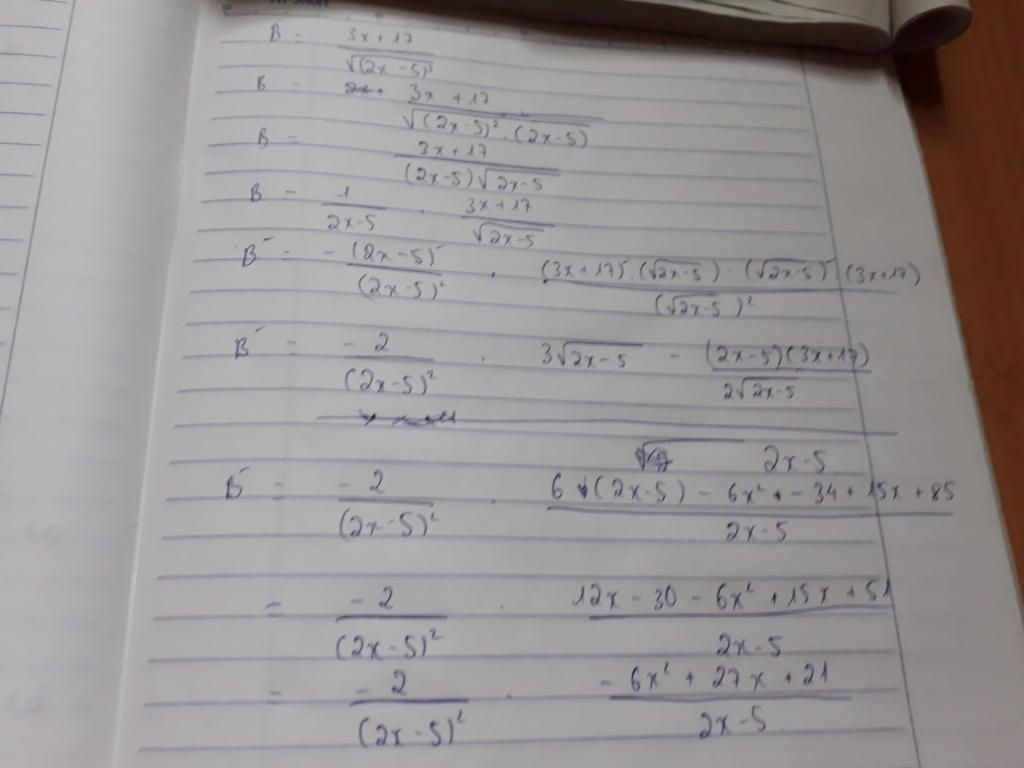 B = (3x + 17) / √(2x - 5)³
B = (3x + 17) / √((2x-5)² . (2x-5))
B = (3x + 17) / ((2x-5)√(2x-5))
B = 1/(2x-5) . (3x+17)/√(2x-5)
B' = -(2x-5)'/(2x-5)² . ((3x+17)'.(√(2x-5)) - (√(2x-5))'.(3x+17)) / (√(2x-5))²
B' = -2/(2x-5)² . (3√(2x-5) - (2x-5)(3x+17)/(2√(2x-5))) / (2x-5)
B' = -2/(2x-5)² . (6(2x-5) - 6x² - 34 + 15x + 85)/(2x-5)
= -2/(2x-5)² . (12x - 30 - 6x² + 15x + 51)/(2x-5)
= -2/(2x-5)² . (-6x² + 27x + 21)/(2x-5)